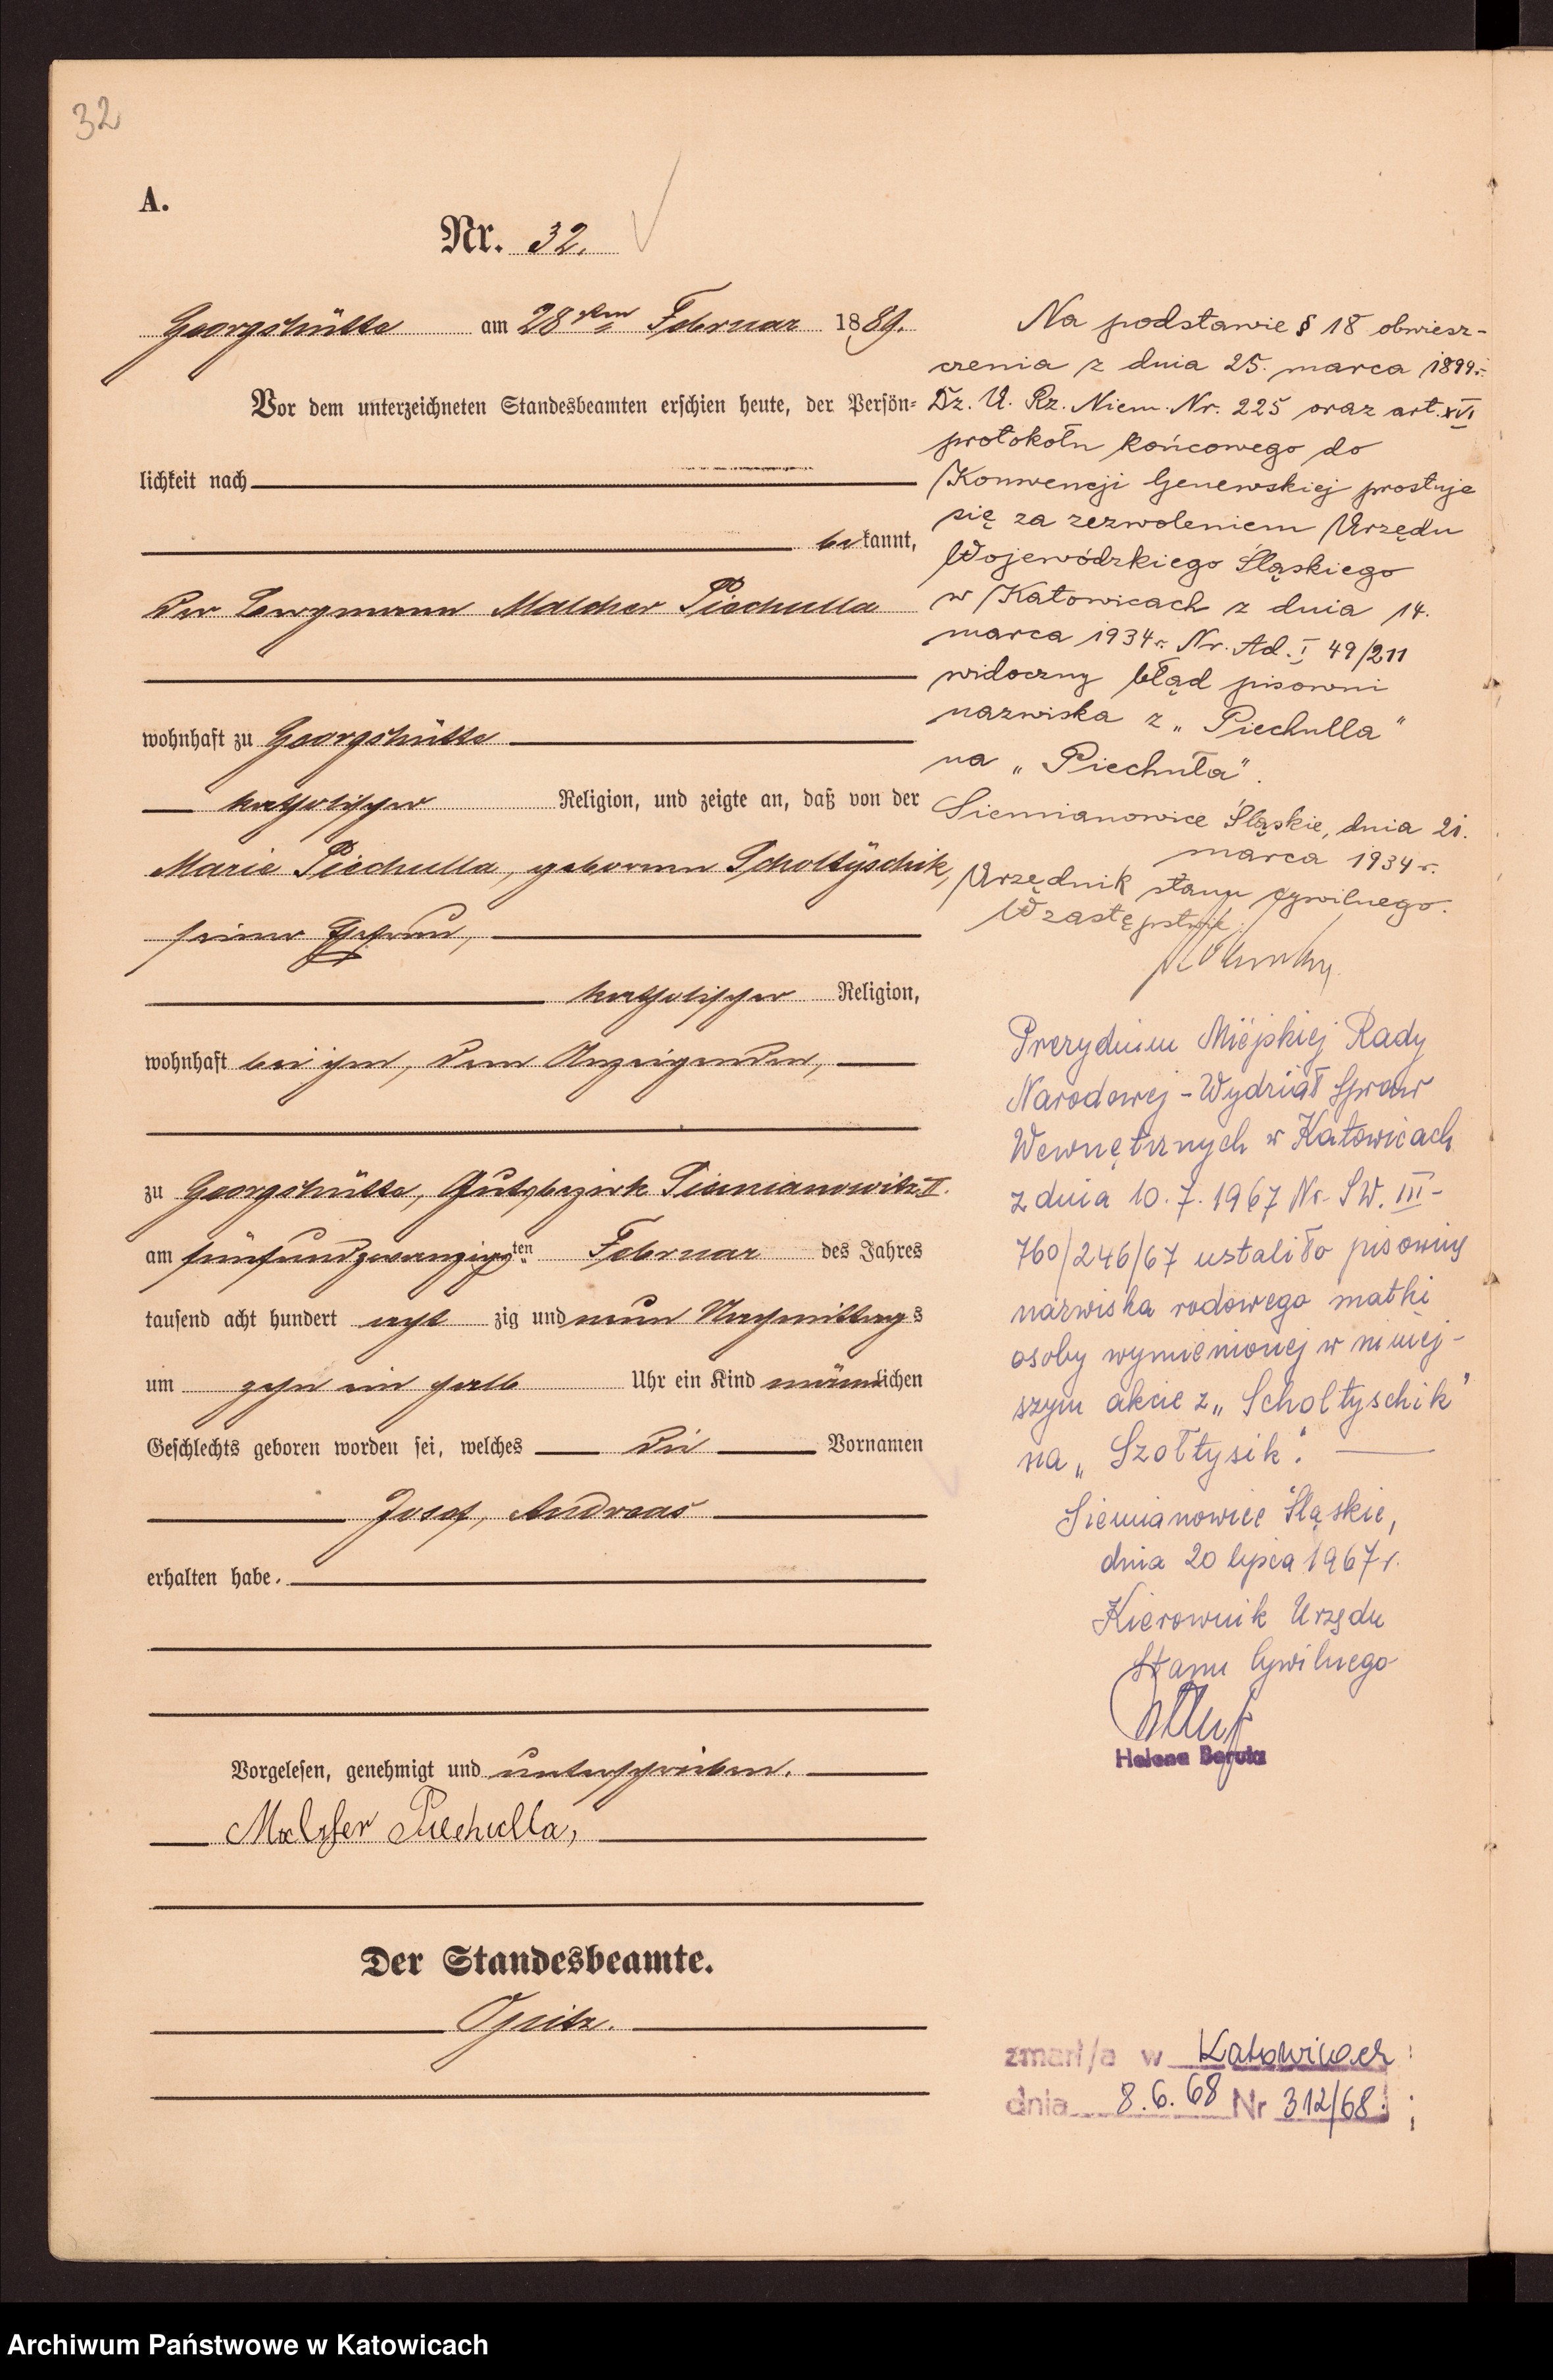 32
A.
Nr. 32.
Georgshütte am 28ten Februar 1889.
Vor dem unterzeichneten Standesbeamten erschien heute, der Persön-
lichkeit nach
bekannt,
der Bergmann Malcher Piechulla
wohnhaft zu Georgshütte
katholischer Religion, und zeigte an, daß von der
Marie Piechulla, geborenen Scholtÿschik,
seiner Ehefrau,
katholischer Religion,
wohnhaft bei ihm, dem Anzeigenden,
zu Georgshütte, Gutsbezirk Siemianowitz II.
am fünfundzwanzigsten Februar des Jahres
tausend acht hundert acht zig und neun Nachmittags
um zehn ein halb Uhr ein Kind männlichen
Geschlechts geboren worden sei, welches die Vornamen
Josef, Andreas
erhalten habe.
Vorgelesen, genehmigt und unterschrieben.
Malcher Piechulla,
Der Standesbeamte.
Opitz.
Na podstawie § 18 obwiesz-
czenia z dnia 25. marca 1899r.
Dz. U. Rz. Niem. Nr. 225 oraz art. XVI
protokołu końcowego do
Konwencji Genewskiej prostuje
się za zezwoleniem Urzędu
Wojewódzkiego Śląskiego
w Katowicach z dnia 14.
marca 1934r. Nr. Ad. I 49/211
widoczny błąd pisowni
nazwiska z „Piechulla"
na „Piechuła".
Siemianowice Śląskie, dnia 21.
marca 1934r.
Urzędnik stanu cywilnego.
W zastępstwie
Prezydium Miejskiej Rady
Narodowej - Wydział Spraw
Wewnętrznych w Katowicach
z dnia 10.7.1967 Nr. SW. III-
760/246/67 ustaliło pisownię
nazwiska rodowego matki
osoby wymienionej w niniej-
szym akcie z „Scholtyschik"
na „Szołtysik".
Siemianowice Śląskie,
dnia 20 lipca 1967r.
Kierownik Urzędu
Stanu Cywilnego
Helena
zmarł/a w Katowicach
dnia 8.6.68 Nr 312/68.
Archiwum Państwowe w Katowicach